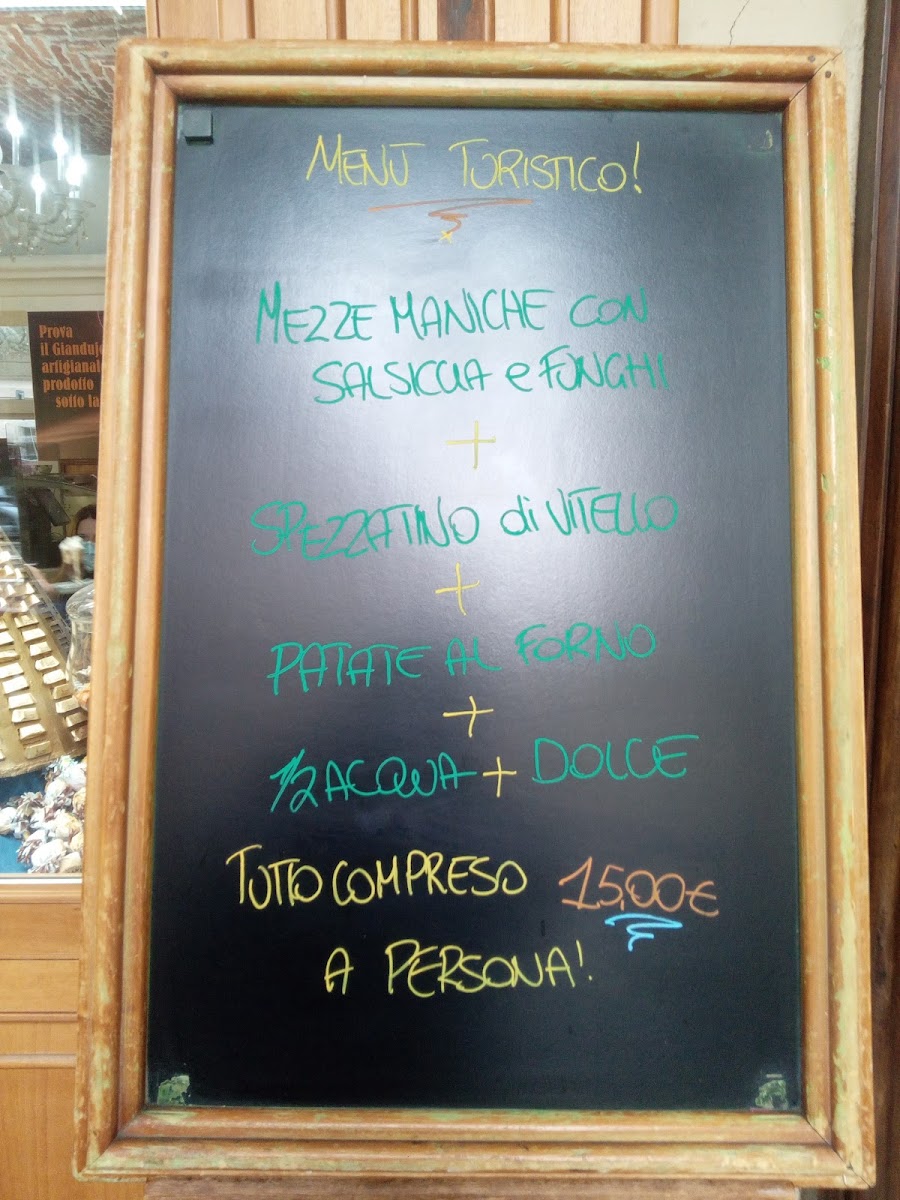 MENU TURISTICO!
MEZZE MANICHE CON
SALSICCIA e FUNGHI
+
SPEZZATINO di VITELLO
+
PATATE AL FORNO
+
1/2 ACQUA + DOLCE
TUTTO COMPRESO 15,00€
A PERSONA!
Prova
artigianal
prodotto
sotto la